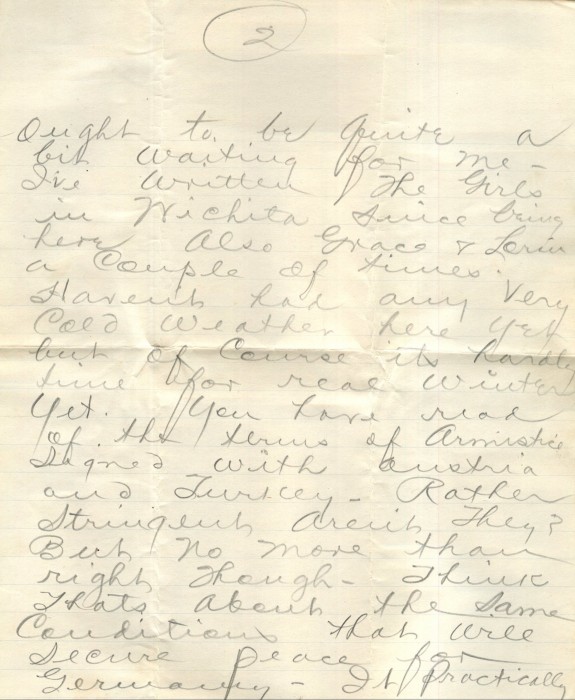 2
Ought to be quite a
bit waiting for me -
I've written the Girls
in Wichita since being
here Also Grace & Lorin
a Couple of times.
Havent had any Very
Cold Weather here yet
but of Course its hardly
time for real Winter
Yet. You have read
of the terms of Armistice
Signed with Austria
and Turkey - Rather
Stringent Arent They?
But No more than
right Though - Think
Thats About the Same
Conditions that will
Secure peace for
Germany - It Practically